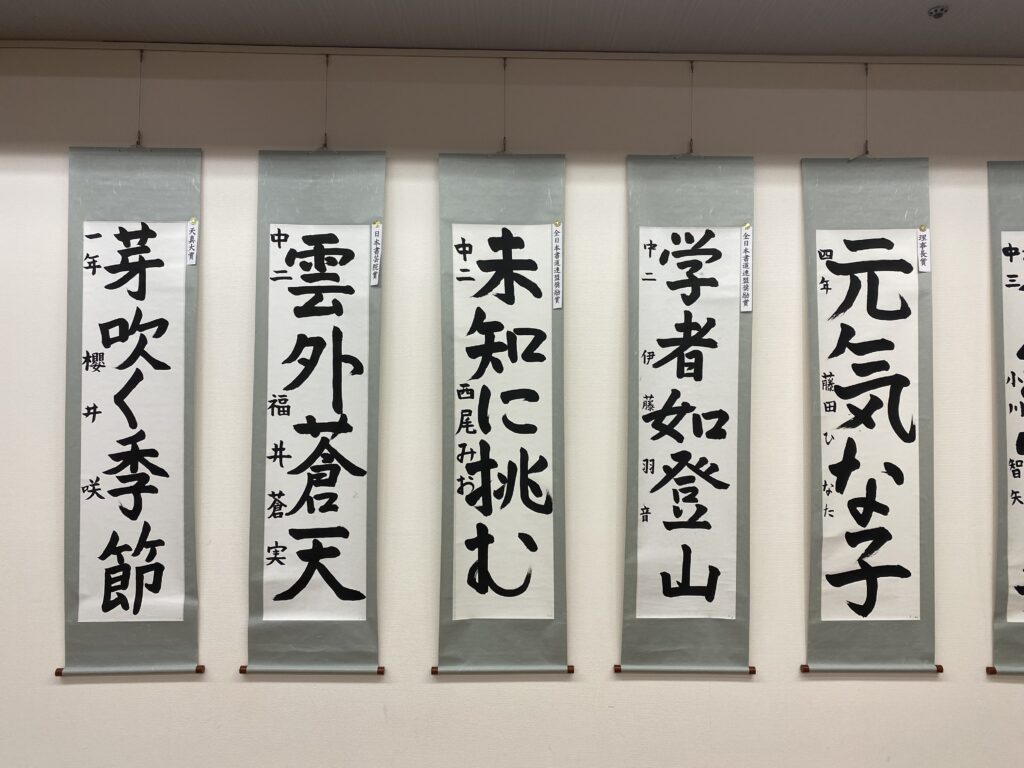 天真大賞
芽吹く季節
一年 櫻井咲
日本書芸院賞
雲外蒼天
中二 福井蒼実
全日本書道連盟奨励賞
未知に挑む
中二 西尾みお
全日本書道連盟奨励賞
学者如登山
中二 伊藤羽音
理事長賞
元気な子
四年 藤田ひなた
中三 小川智矢